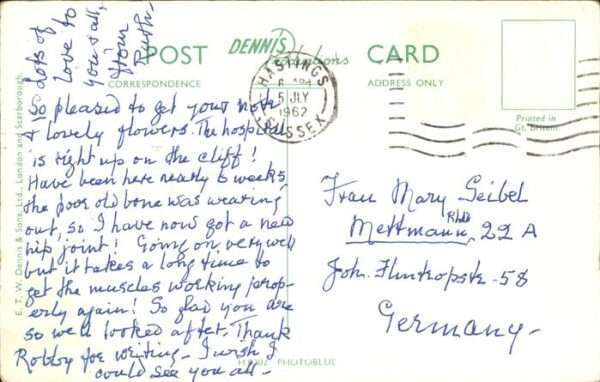 POST DENNIS Productions CARD
CORRESPONDENCE
ADDRESS ONLY
HASTINGS
5 JLY
1962
SUSSEX
Printed in
Gt. Britain
E. T. W. Dennis & Sons, Ltd., London and Scarborough.
So pleased to get your note
& lovely flowers. The hospital
is right up on the cliff!
Have been here nearly 6 weeks,
the poor old bone was wearing
out, so I have now got a new
hip joint! Going on very well
but it takes a long time to
get the muscles working prop-
erly again! So glad you are
so well looked after. Thank
Robby for writing - I wish I
could see you all -
Lots of
love to
you & all,
from
Ruth -
Frau Mary Seibel
Mettmann, Rhld 22 A
Joh. Flintropstr - 58
Germany -
PHOTOBLUE